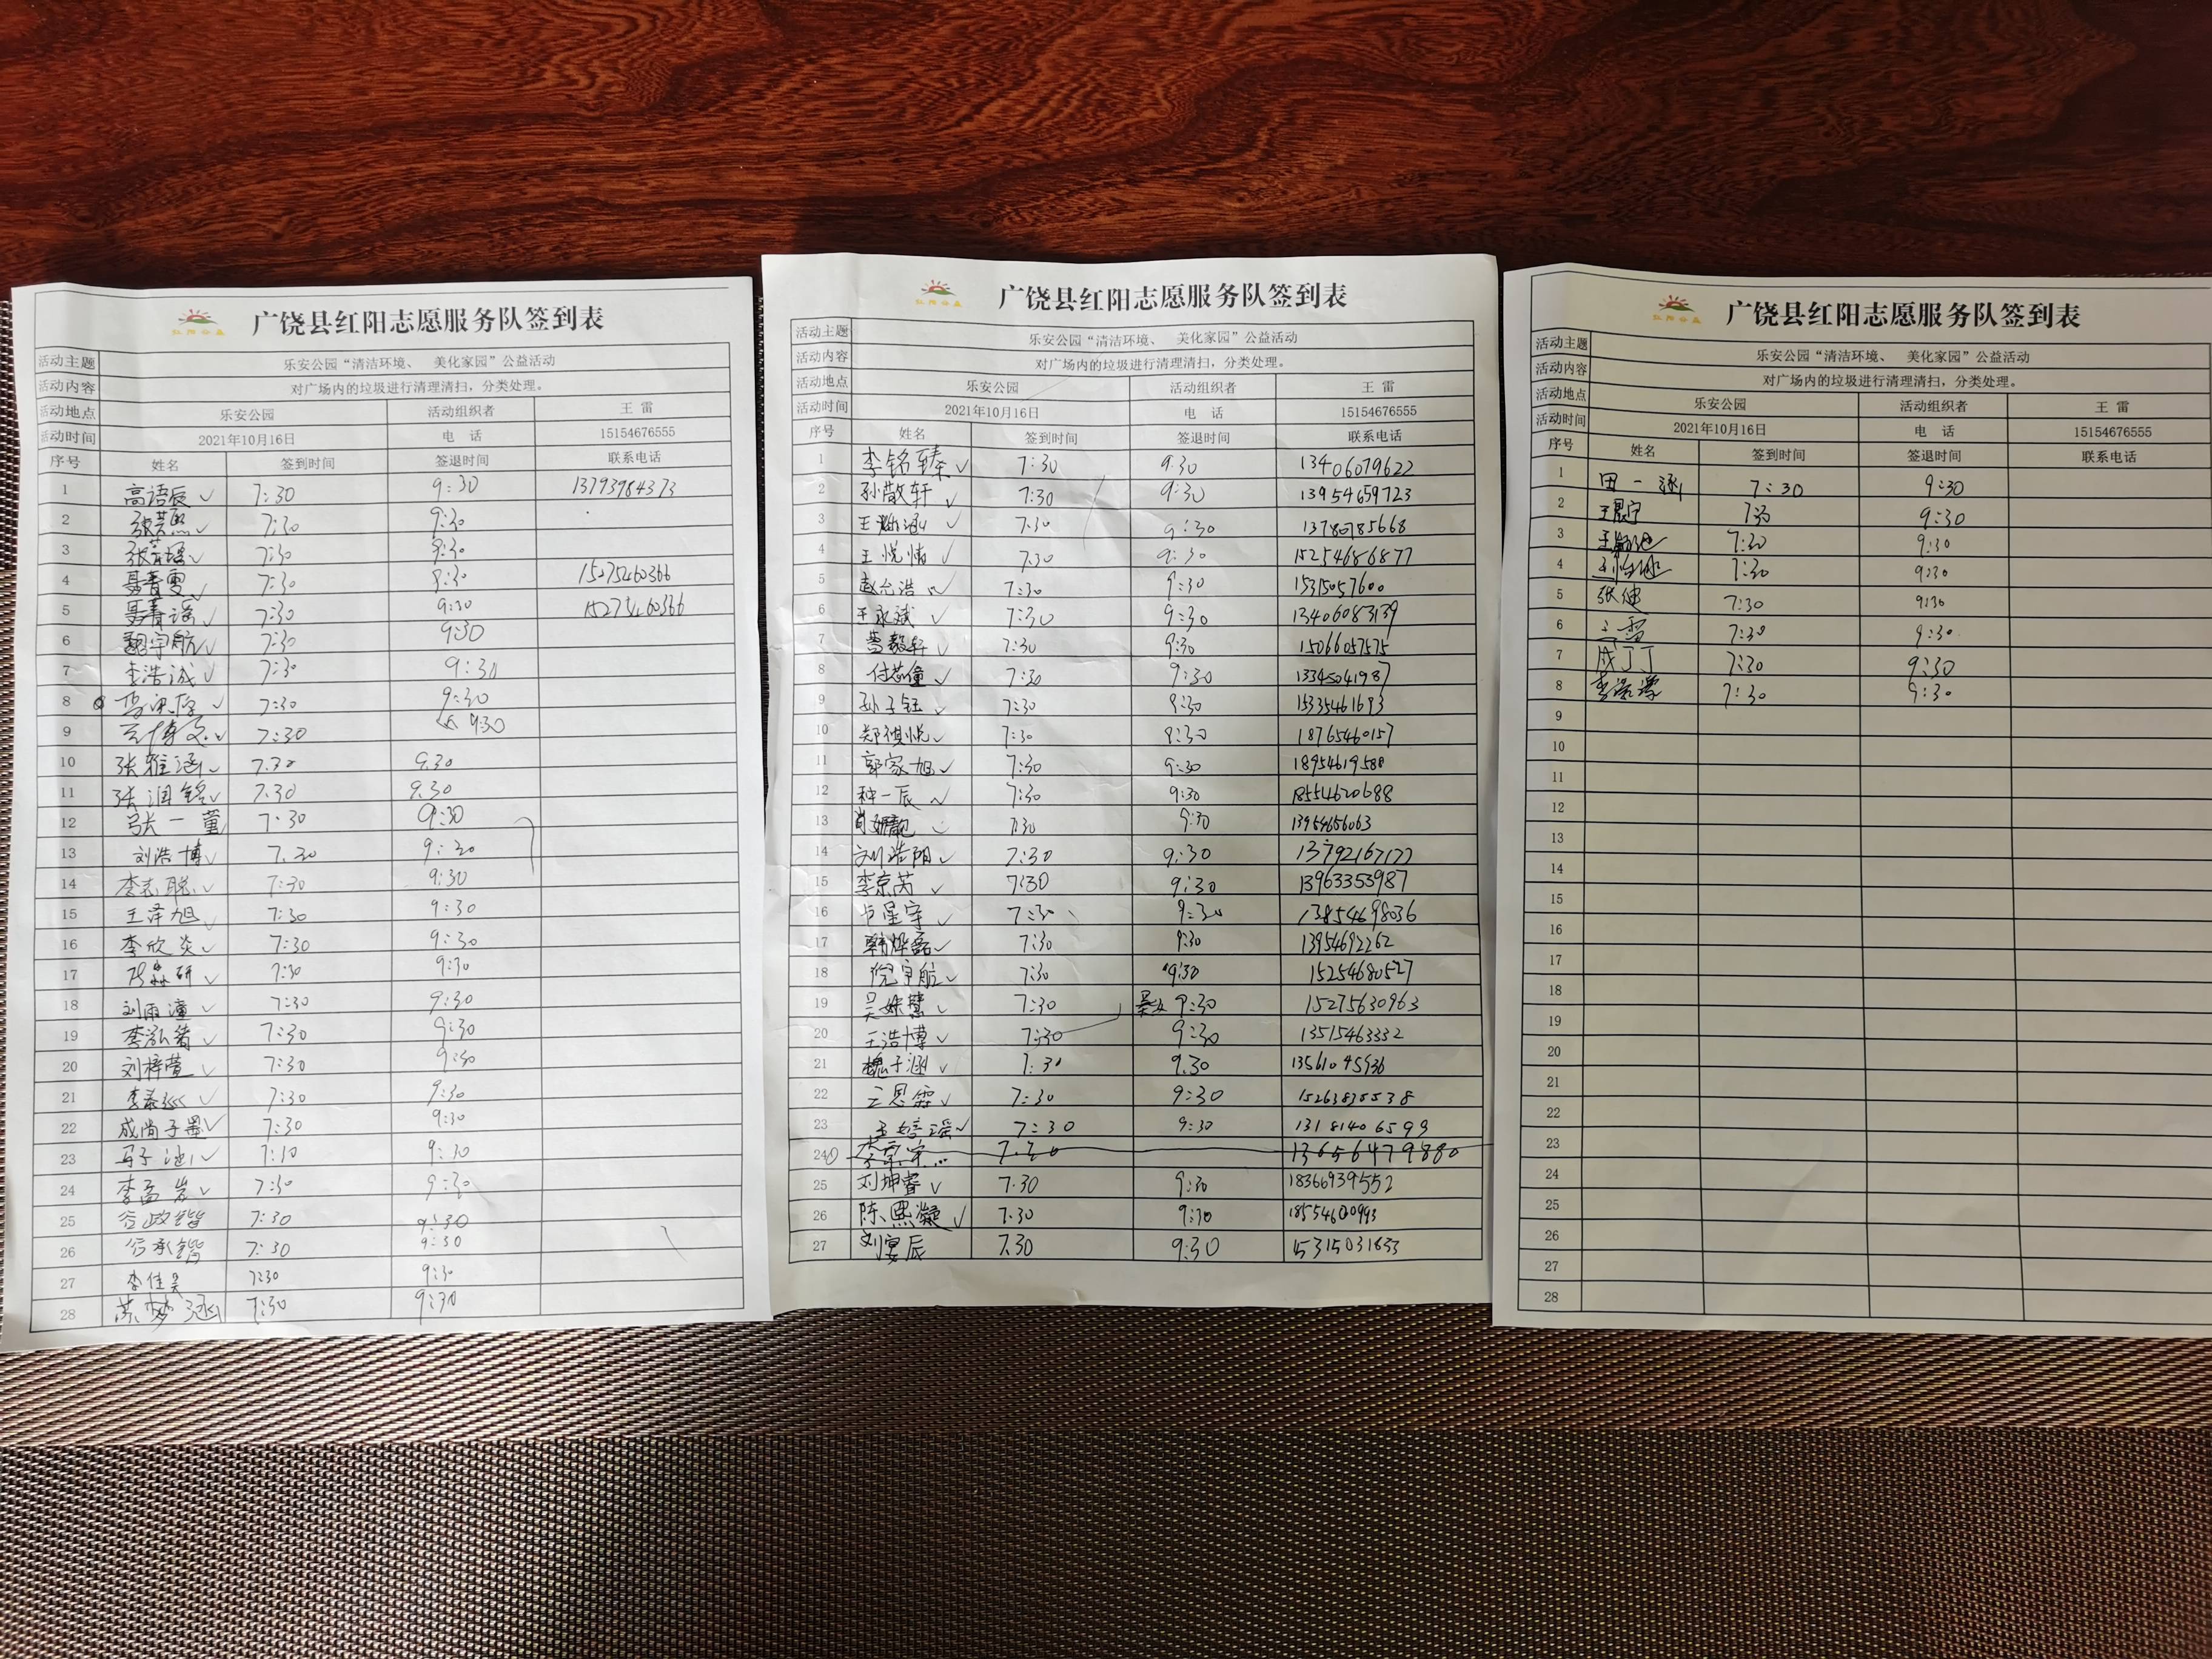 红阳公益
广饶县红阳志愿服务队签到表
活动主题 乐安公园“清洁环境、 美化家园”公益活动
活动内容 对广场内的垃圾进行清理清扫，分类处理。
活动地点 乐安公园 活动组织者 王 雷
活动时间 2021年10月16日 电 话 15154676555
序号 姓名 签到时间 签退时间 联系电话
1 高语辰 7:30 9:30 13793984373
2 7:30 9:30
3 7:30 9:30
4 聂青雯 7:30 9:30 15275460366
5 聂青瑶 7:30 9:30 15275460366
6 魏宇航 7:30 9:30
7 李浩诚 7:30 9:30
8 7:30 9:30
9 王博文 7:30 9:30
10 张雅涵 7:30 9:30
11 张润铭 7:30 9:30
12 张一董 7:30 9:30
13 刘浩博 7:30 9:30
14 李志聪 7:30 9:30
15 王泽旭 7:30 9:30
16 李欣炎 7:30 9:30
17 7:30 9:30
18 刘雨潼 7:30 9:30
19 李泓锗 7:30 9:30
20 刘梓萱 7:30 9:30
21 7:30 9:30
22 成尚子墨 7:30 9:30
23 马子涵 7:10 9:30
24 李孟岩 7:30 9:30
25 7:30 9:30
26 7:30 9:30
27 李佳昊 7:30 9:30
28 梦涵 7:30 9:30
红阳公益
广饶县红阳志愿服务队签到表
活动主题 乐安公园“清洁环境、 美化家园”公益活动
活动内容 对广场内的垃圾进行清理清扫，分类处理。
活动地点 乐安公园 活动组织者 王 雷
活动时间 2021年10月16日 电 话 15154676555
序号 姓名 签到时间 签退时间 联系电话
1 李铭臻 7:30 9:30 13406079622
2 孙散轩 7:30 9:30 13954659723
3 7:30 9:30 13780785668
4 王悦情 7:30 9:30 15254686877
5 赵允浩 7:30 9:30 15315057600
6 王永斌 7:30 9:30 13406083139
7 7:30 9:30 15066057575
8 付芯僮 7:30 9:30 13345041987
9 孙子钰 7:30 9:30 15335461693
10 郑祺悦 7:30 9:30 18765460157
11 郭家旭 7:30 9:30 18954619588
12 种一辰 7:30 9:30 18554620688
13 肖妍靓 7:30 9:30 13954656063
14 刘浩阳 7:30 9:30 13792167177
15 李京芮 7:30 9:30 13963353987
16 7:30 9:30 13854698036
17 韩烨磊 7:30 9:30 13954692262
18 倪宇航 7:30 9:30 15254680527
19 吴姝慧 7:30 9:30 15275630963
20 王浩博 7:30 9:30 13515463332
21 魏子涵 7:30 9:30 13561045936
22 王恩霖 7:30 9:30 15263835538
23 王婧瑶 7:30 9:30 13181406599
24 13656479880
25 刘坤睿 7:30 9:30 18366939552
26 陈熙凝 7:30 9:30 18554600993
27 刘宴辰 7:30 9:30 15315031633
红阳公益
广饶县红阳志愿服务队签到表
活动主题 乐安公园“清洁环境、 美化家园”公益活动
活动内容 对广场内的垃圾进行清理清扫，分类处理。
活动地点 乐安公园 活动组织者 王 雷
活动时间 2021年10月16日 电 话 15154676555
序号 姓名 签到时间 签退时间 联系电话
1 田一涵 7:30 9:30
2 王晨宁 7:30 9:30
3 7:30 9:30
4 7:30 9:30
5 张健 7:30 9:30
6 王雷 7:30 9:30
7 成丁丁 7:30 9:30
8 7:30 9:30
9
10
11
12
13
14
15
16
17
18
19
20
21
22
23
24
25
26
27
28